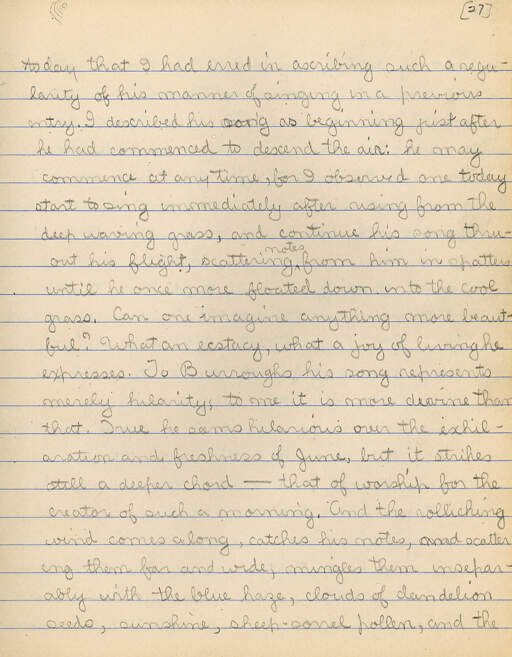 [27]
today that I had erred in ascribing such a regu-
larity of his manner of singing in a previous
entry. I described his song as beginning just after
he had commenced to descend the air: he may
commence at any time, for I observed one today
start to sing immediately after rising from the
deep waving grass, and continue his song thru-
out his flight, scattering notes from him in spatters
until he once more floated down into the cool
grass. Can one imagine anything more beaut-
ful? What an ecstacy, what a joy of living he
expresses. To Burroughs his song represents
merely hilarity; to me it is more devine than
that. True he seems hilarious over the exhil-
aration and freshness of June, but it strikes
still a deeper chord — that of worship for the
creator of such a morning. And the rolliching
wind comes along, catches his notes, and scatter
ing them far and wide, mingles them insepar-
ably with the blue haze, clouds of dandelion
seeds, sunshine, sheep-sorrel pollen, and the